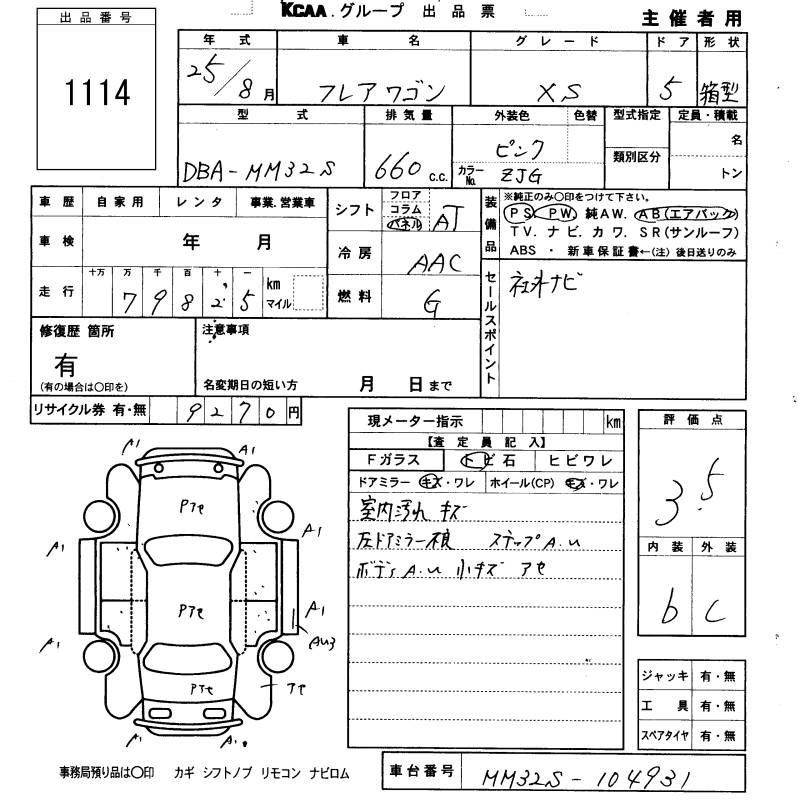 KCAA.グループ 出品票
主催者用
出品番号
1114
年式 車名 グレード ドア 形状
25/8月 フレアワゴン XS 5 箱型
型式 排気量 外装色 色替 型式指定 定員・積載
DBA-MM32S 660 c.c. ピンク 名
カラーNo. ZJG 類別区分 トン
車歴 自家用 レンタ 事業.営業車
車検 年 月
走行 十万 万 千 百 十 一
7 9 8 2 5 km マイル
シフト フロア コラム パネル AT
冷房 AAC
燃料 G
装備品 ※純正のみ○印をつけて下さい。
PS PW 純AW. AB(エアバック)
TV. ナビ. カワ. SR(サンルーフ)
ABS ・ 新車保証書←(注) 後日送りのみ
セールスポイント 社外ナビ
修復歴 箇所
有
(有の場合は○印を)
注意事項
名変期日の短い方 月 日まで
リサイクル券 有・無 9270円
現メーター指示 km
【査定員記入】
Fガラス トビ石 ヒビワレ
ドアミラー キズ・ワレ ホイール(CP) キズ・ワレ
室内汚れ キズ
左ドアミラー根 ステップA.U
ボディA.U 小キズ アセ
評価点
3.5
内装 外装
b C
A1 A1
Pアセ
A1 A1
Pアセ A1
AU3
A1
Pアセ アセ
A1 A1
ジャッキ 有・無
工具 有・無
スペアタイヤ 有・無
事務局預り品は○印 カギ シフトノブ リモコン ナビロム
車台番号 MM32S-104931